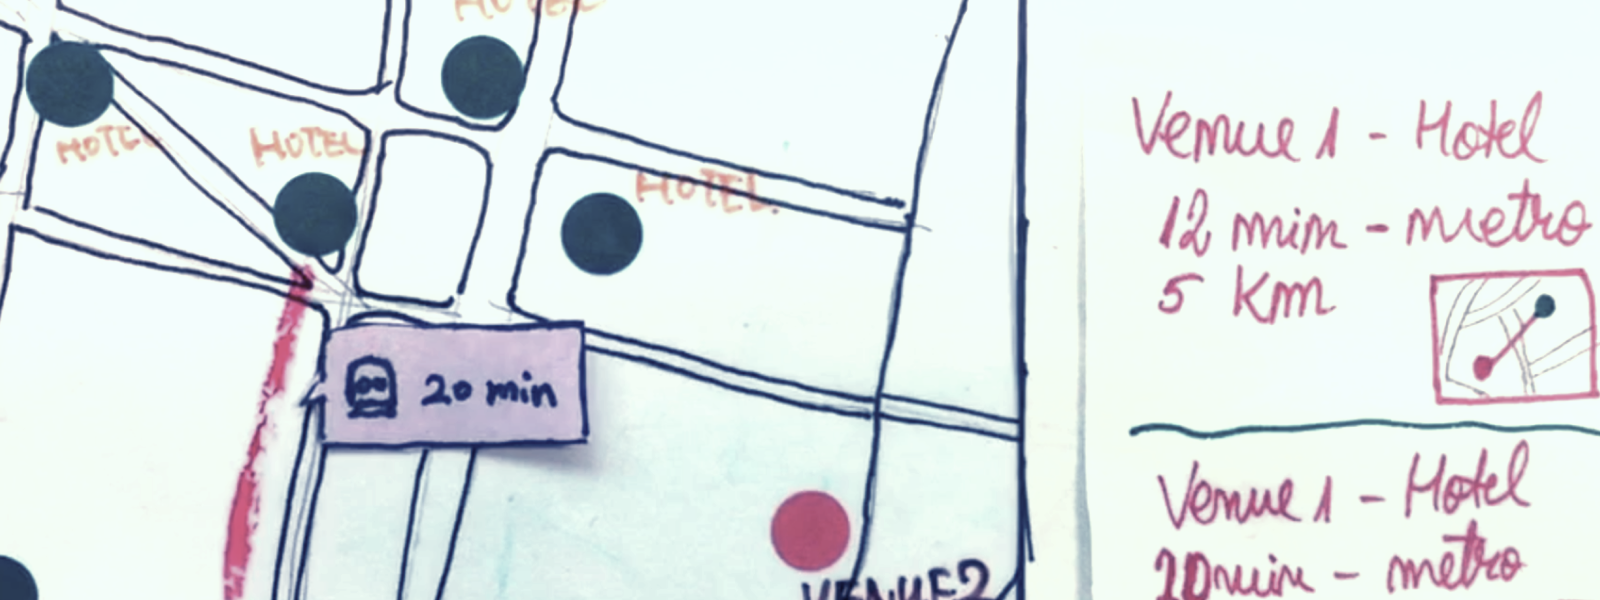 HOTEL
HOTEL
HOTEL
HOTEL.
20 min
VENUE2
Venue 1 - Hotel
12 min - metro
5 Km
Venue 1 - Hotel
20min - metro